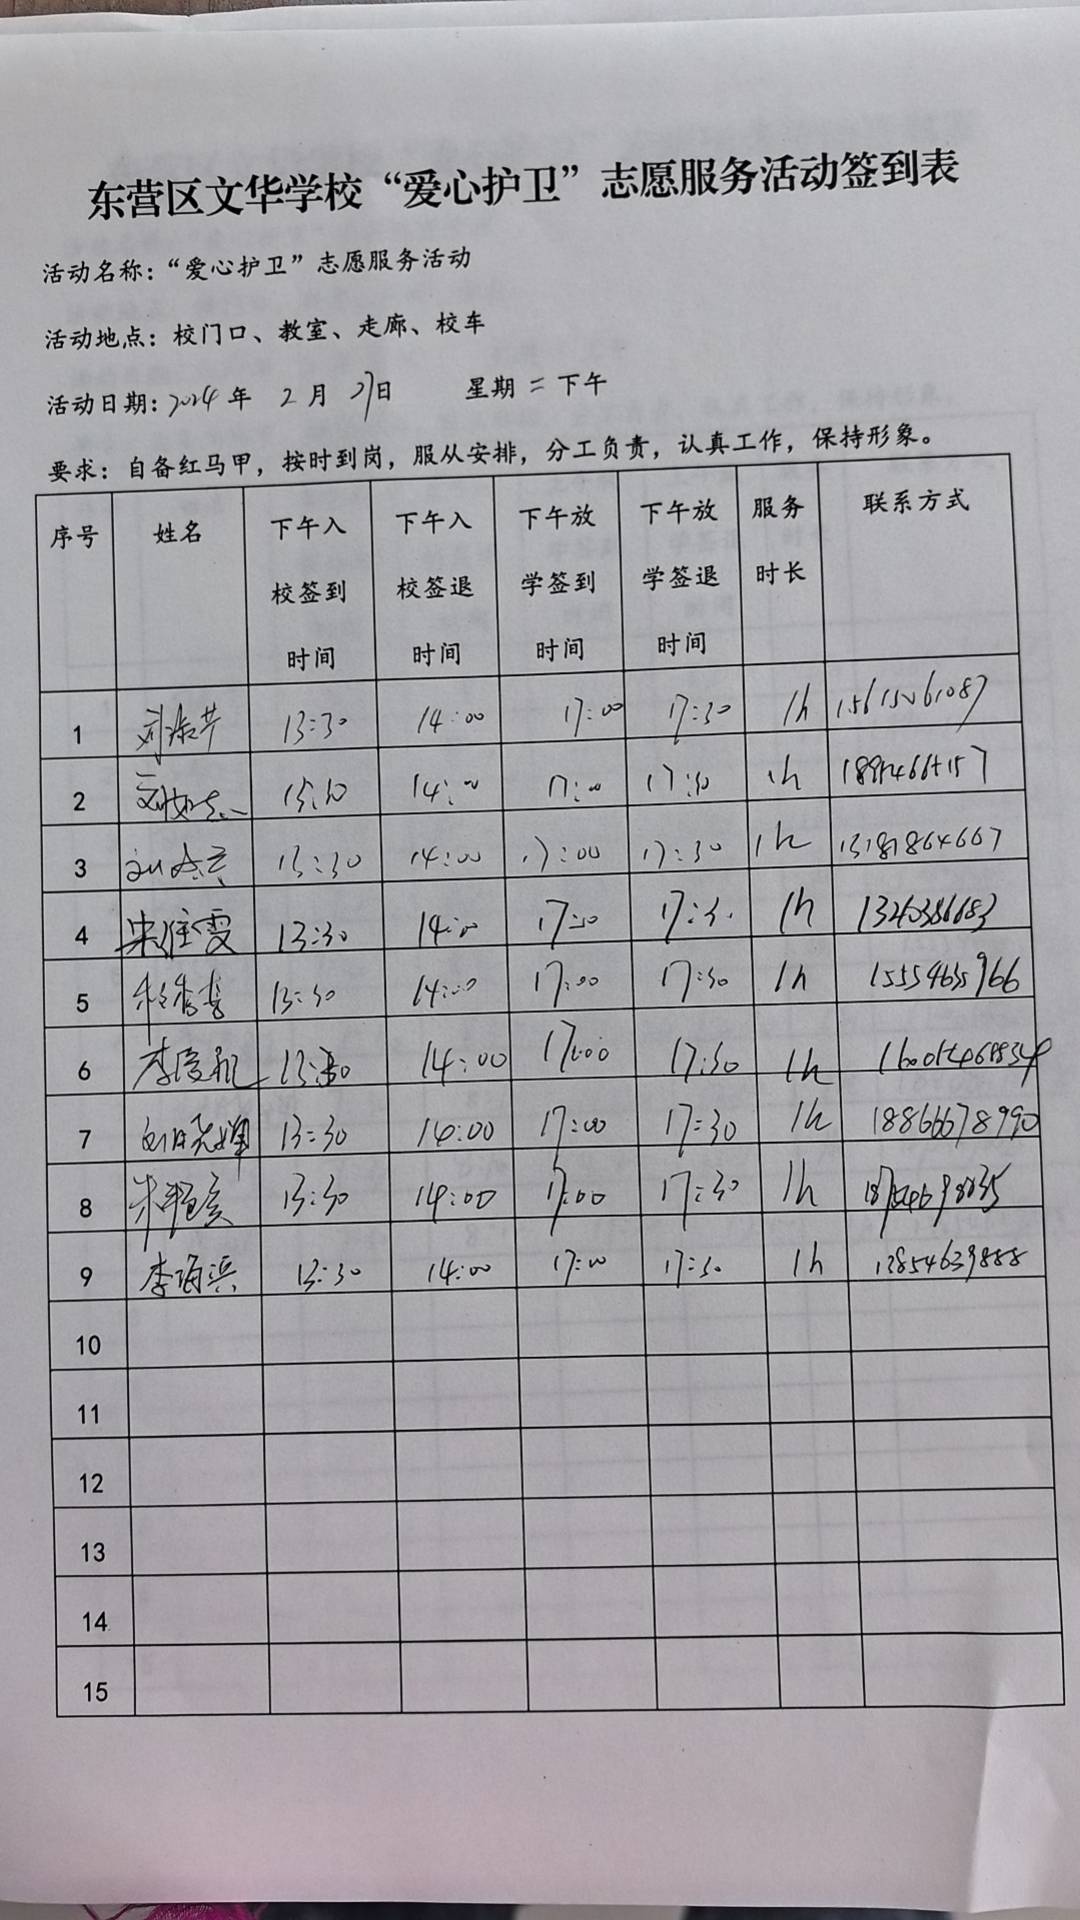 东营区文华学校“爱心护卫”志愿服务活动签到表
活动名称：“爱心护卫”志愿服务活动
活动地点：校门口、教室、走廊、校车
活动日期：2024年 2月 27日 星期二下午
要求：自备红马甲，按时到岗，服从安排，分工负责，认真工作，保持形象。
序号 姓名 下午入校签到时间 下午入校签退时间 下午放学签到时间 下午放学签退时间 服务时长 联系方式
1 13:30 14:00 17:00 17:30 1h 15615061087
2 14:00 17:00 17:30 1h
3 13:30 14:00 17:00 17:30 1h
4 13:30 14:00 17:30 1h
5 13:30 14:00 17:00 17:30 1h 15554635966
6 13:30 14:00 17:00 17:30 1h
7 刘晓婵 13:30 14:00 17:00 17:30 1h 18866678990
8 13:30 14:00 17:00 17:30 1h
9 李海滨 13:30 14:00 17:00 17:30 1h 13854639888
10
11
12
13
14
15